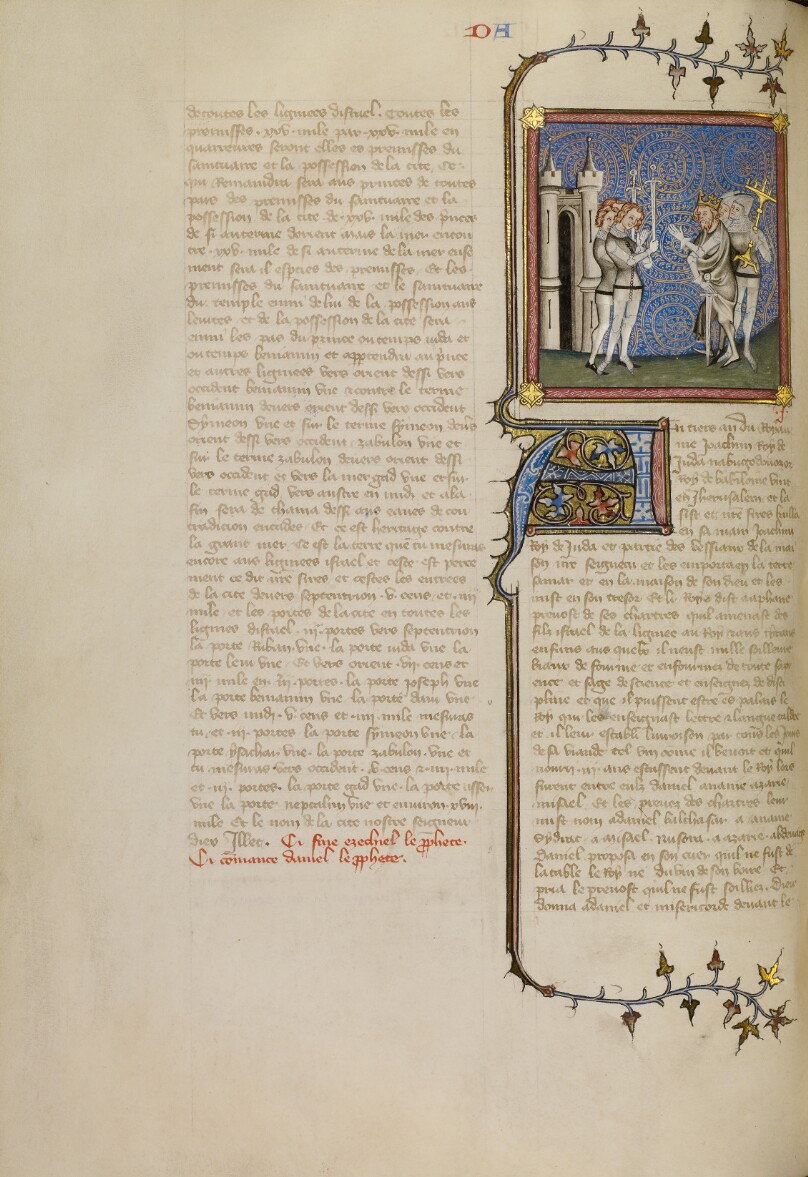 DA
de toutes les lignees disrael. Toutes les
premisses. xxv. mile par. xxv. mile en
quarreures seront elles es premisses du
saintuaire et la possession de la cite, Ce
qui Remaindra sera aus princes de toutes
pars des premisses du saintuaire et la
possession de la cite de. xxv. mile des
de si au terme dorient la mer encon
tre. xxv. mile de si au terme de la mer ense
ment sera il es des premisses. Et les
premisses du saintuaire et le saintuaire
du temple enmi de lui de la possession aus
leuites et de la possession de la cite sera
enmi les pars du prince ou temps iuda et
ou temps beniamin et au
et autres lignees vers orient dessi vers
occident beniamin vne encontre le terme
beniamin deuers orient dessi vers occident
Symeon vne et sur le terme symeon deuers
orient dessi vers occident. zabulon vne et
sur le terme zabulon deuers orient dessi
vers occident et vers la mer gad vne et sur
le terme gad vers austre en midi et a la
fin sera de dessi aus eaues de con
tradicion en cades. Et ce est heritage contre
la grant mer, Ce est la terre que tu
encore aus lignees israel et ceste est
ment ce dit nre sires et cestes les entrees
de la cite deuers septentrion. v. cens. et. iiij
mile. et les portes de la cite en toutes les
lignees disrael. iij. portes vers septentrion
la porte Ruben. vne. la porte iuda vne la
porte leui vne. Et vers orient. v. cens et
iiij. mile en. iij. portes. la porte ioseph vne
la porte beniamin vne la porte dan vne
Et vers midi. v. cens et. iiij. mile mesuras
tu. et. iij portes la porte symeon vne. la
porte ysachar. vne. la porte zabulon. vne et
tu mesuras vers occident. v. cens 2. iiij. mile
et. iij. portes. la porte gad vne. la porte asser
vne la porte neptalim vne et enuiron. xviij.
mile Et le nom de la cite nostre seigneur
dieu Illec. Ci fine ezechiel le pphete.
Ci comance daniel le pphete.
.j.
En tiers an du Royau
me Joachim Roy de
Juda nabugodonozor
Roy de babiloine vint
en Jherusalem. et la
sist et nre sires bailla
en sa main Joachim
Roy de Juda et partie des vessiaux de la mai
son nre seigneur et les emporta en la terre
sanaar et en la maison de son dieu et les
mist en son tresor. Et le Roy dist a
preuost de ses chartres quil amenast des
filz israel de la lignee au Roy 2 aus tyrans
enfans aus quelx il neust nulle
biaux de fourme et enfourmez de toute sapi
ence et sage de science et enseignez de disci
pline et que il puissent estre es palais le
Roy qui les enseignast lettre 2 langue caldee
et il leur establi liuroison par tous les iours
de sa viande et vin comme il beuoit et quil
nourri. iij. ans estassent deuant le Roy lors
furent entre eulx daniel ananie azarie
misael Et les preuoz des chartres leur
mist nom a daniel balthasar. a ananie
Sydrac. a misael a azarie. abdenago
Daniel proposa en son cuer quil ne fust de
la table le Roy ne du vin de son boire Et
pria le preuost quil ne fust soilliez. Dieu
donna a daniel et misericorde deuant le